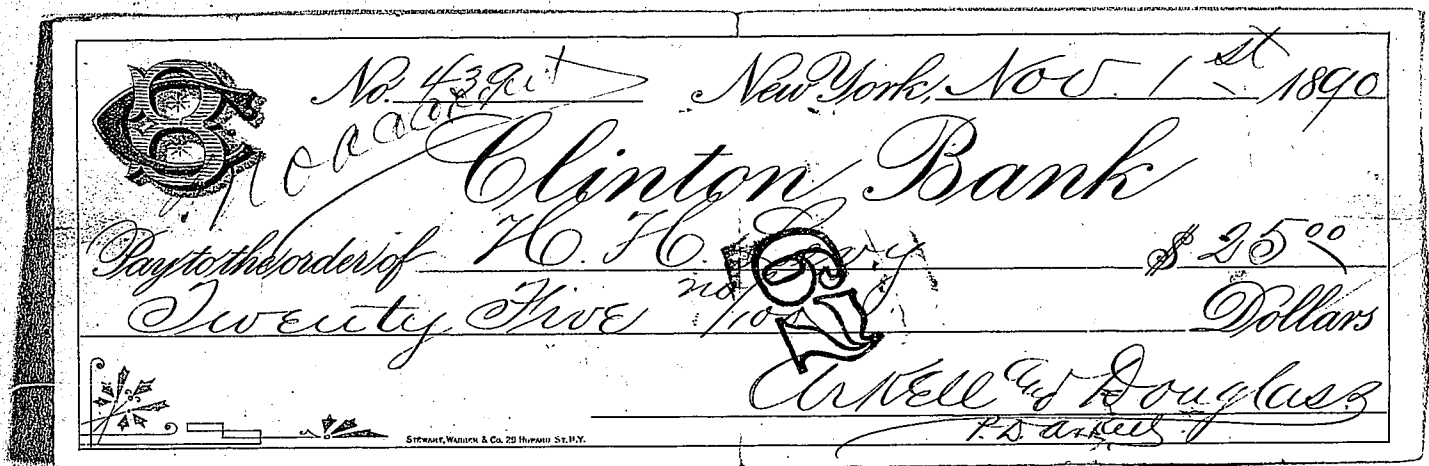 No. 439 New York, Nov. 1st 1890
Clinton Bank
Pay to the order of H. H. $ 25 00
Twenty Five no/100 Dollars
Arkell and Douglas
P. D. Arkell
STEWART, WARREN & Co. 29 HOWARD ST. N.Y.